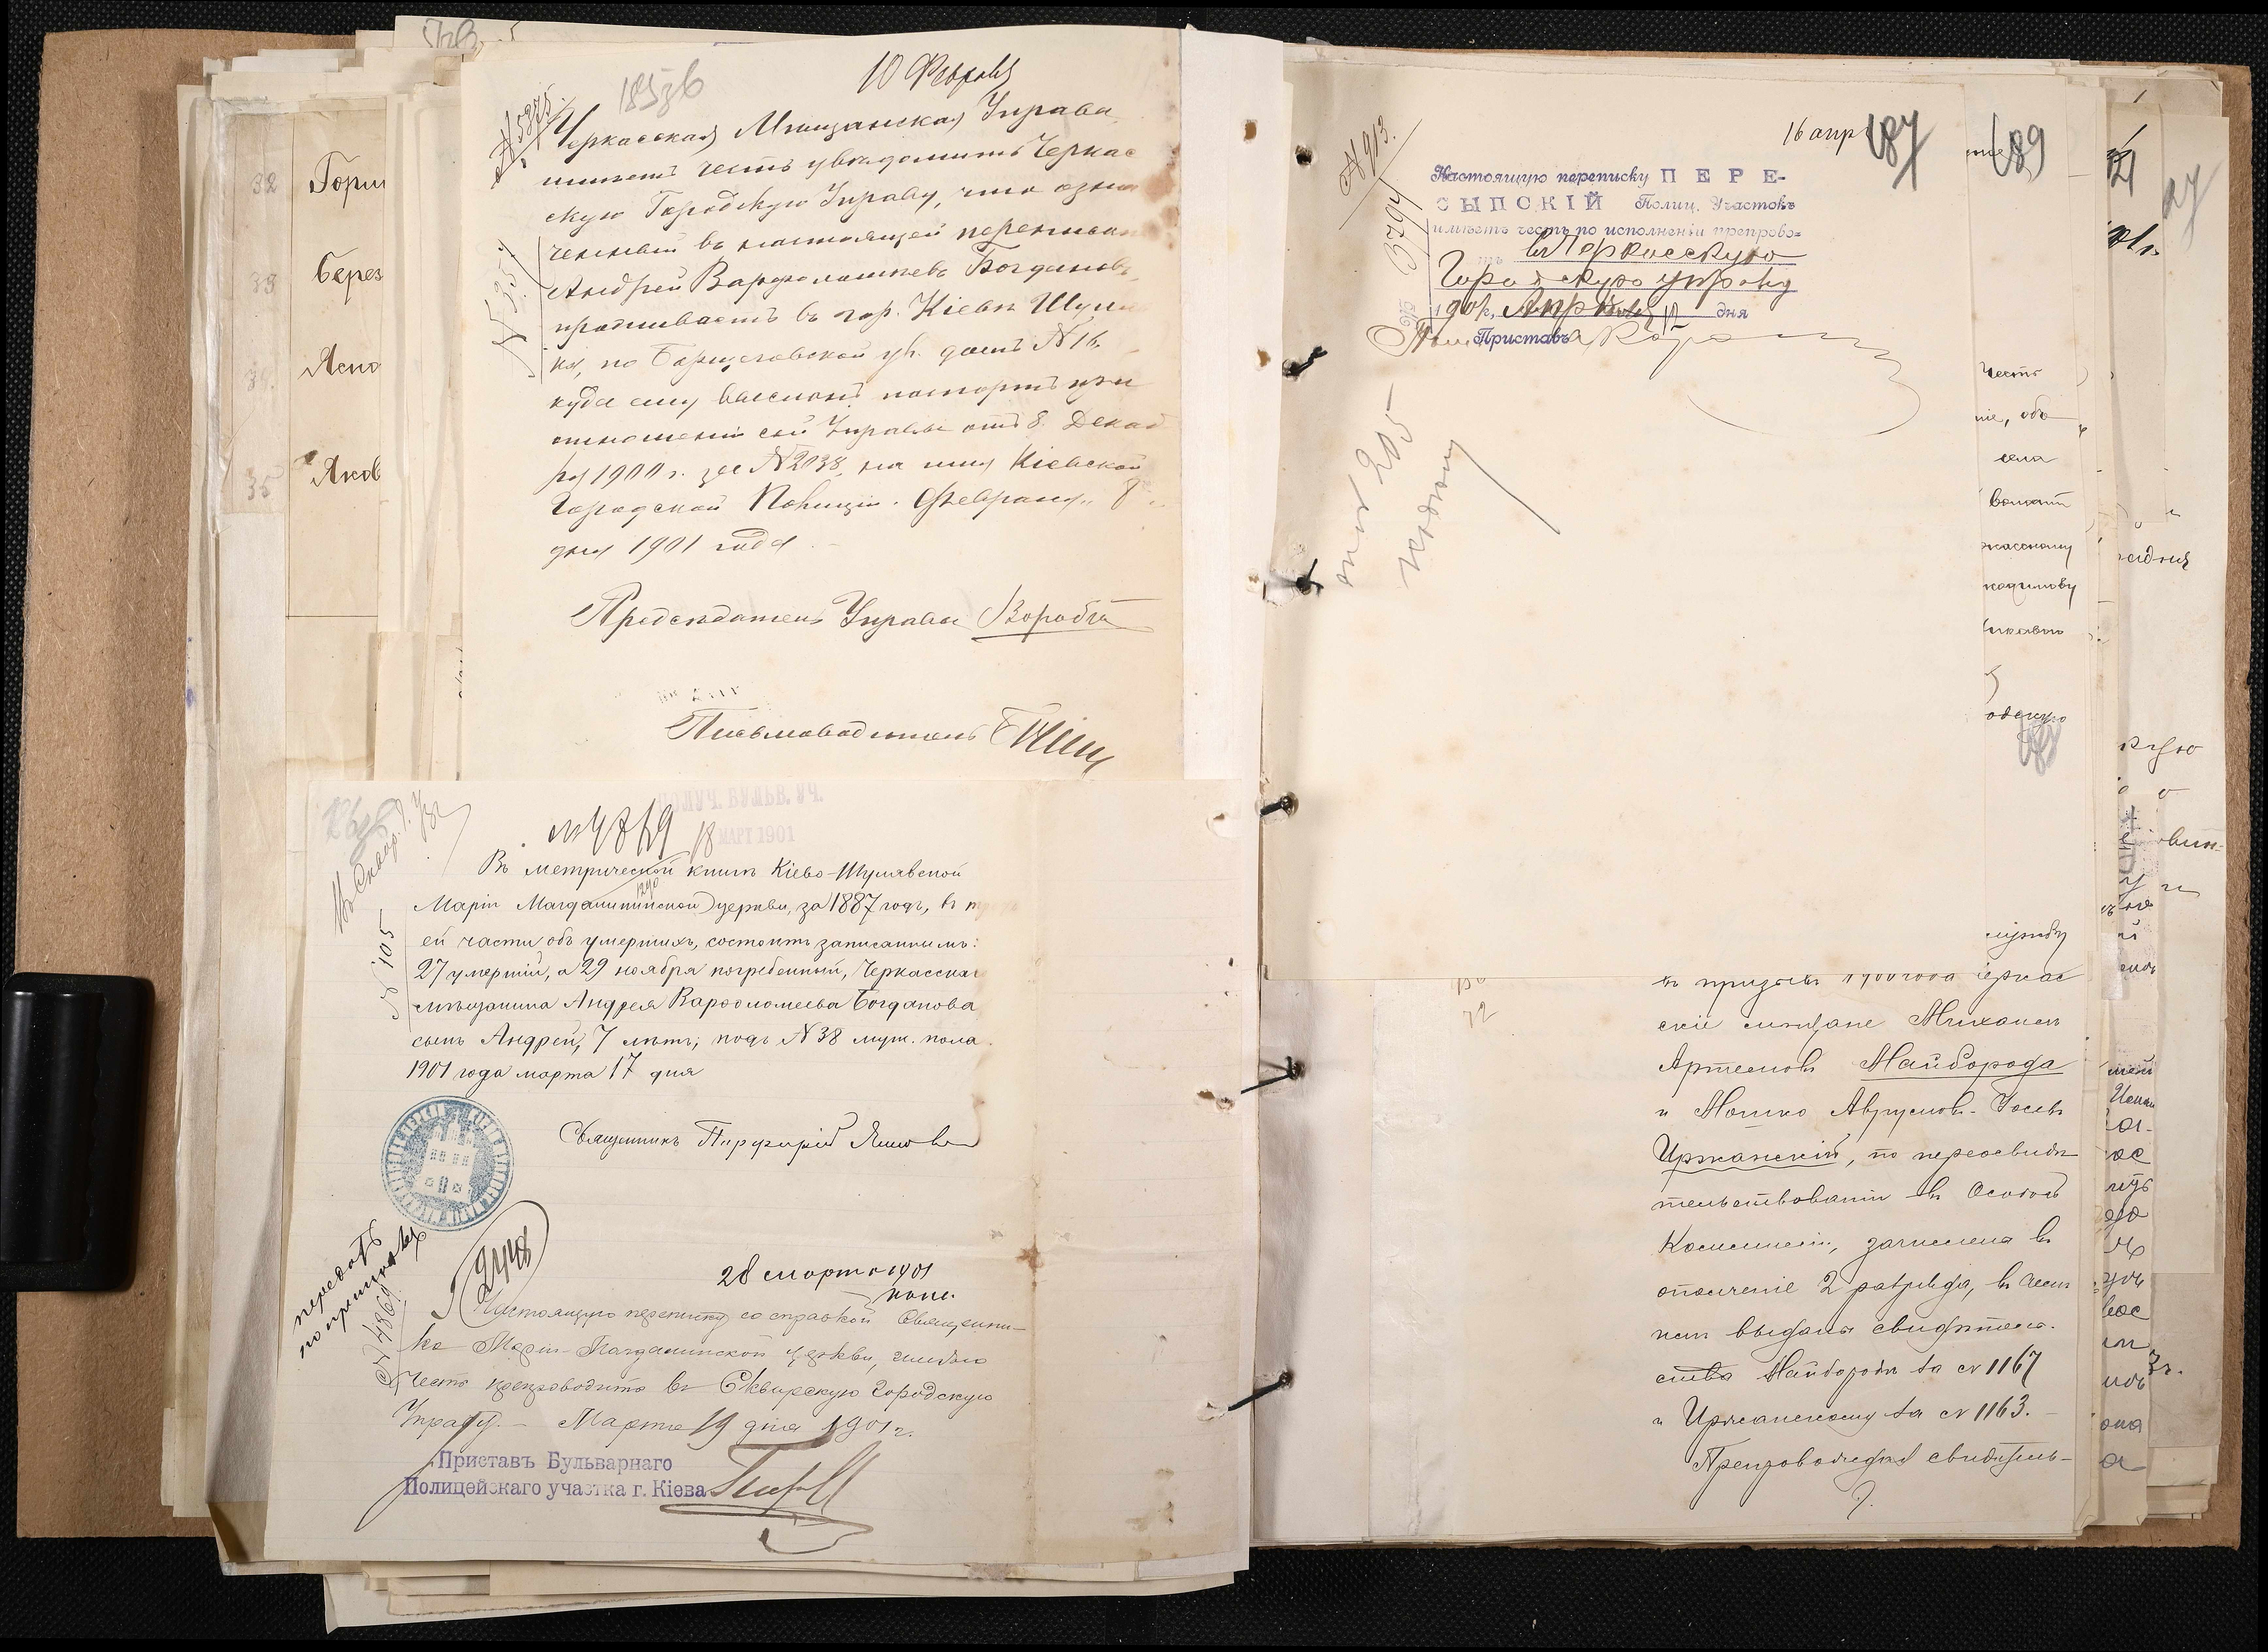 10 Февраля
185 зв
№ 5875
Черкасская Мещанская Управа
имеетъ честь увѣдомить Черкас
скую Городскую Управу, что озна
ченный въ настоящей переписке
Андрей Варфоломѣевъ Богдановъ
проживаетъ въ гор. Кіевѣ Шуляв
ка, по Борщаговской ул. домъ № 16,
куда ему высланъ паспортъ при
отношеніи сей Управы отъ 8 Декаб
ря 1900 г. за № 2038, на имя Кіевской
Городской Полиціи. Февраля 8
дня 1901 года
№ 535
Предсѣдатель Управы
Письмоводитель
ПОЛУЧ. БУЛЬВ. УЧ.
18 МАРТ 1901
№ 4869
Въ метрической книгѣ Кіево-Шулявской
Маріи Магдалининской церкви, за 1887 годъ, въ
ей части объ умершихъ, состоитъ записаннымъ:
27 умершій, а 29 ноября погребенный, Черкасскаг
мѣщанина Андрея Варѳоломеева Богданова
сынъ Андрей, 7 лѣтъ; подъ № 38 муж. пола.
1901 года марта 17 дня
№ 105
Священникъ Порфирій
передать
по принадл
28 марта 1901
Настоящую переписку со справкой Священни-
ка Маріи-Магдалинской церкви, имѣю
честь препроводить въ Сквирскую Городскую
Управу. — Марта 19 дня 1901 г.
№ 4869
Приставъ Бульварнаго
Полицейскаго участка г. Кіева
32 Горш
33 Берез
34. Ясно
35 Яков
№ 913.
16 апр
187
Настоящую переписку ПЕРЕ-
СЫПСКІЙ Полиц. Участокъ
имѣетъ честь по исполненіи препрово=
въ Черкасскую
Городскую управу
1901 г, Апреля 12 дня
Приставъ
205
189
честь
ніе, объ
села
волост
ркасскому
одскую
службу
въ призывъ 1900 года Черкас
скіе мѣщане Михаилъ
Артемовъ Майборода
и Мошко Аврумов-Іосевъ
Уржанскій, по переосвидѣ
тельствованіи въ Особой
Коммисіи, зачислены въ
ополченіе 2 разряда, въ чемъ
имъ выданы свидѣтель-
ства Майбороды за № 1167
и Уржанскому за № 1163.
Препровождая свидѣтель-